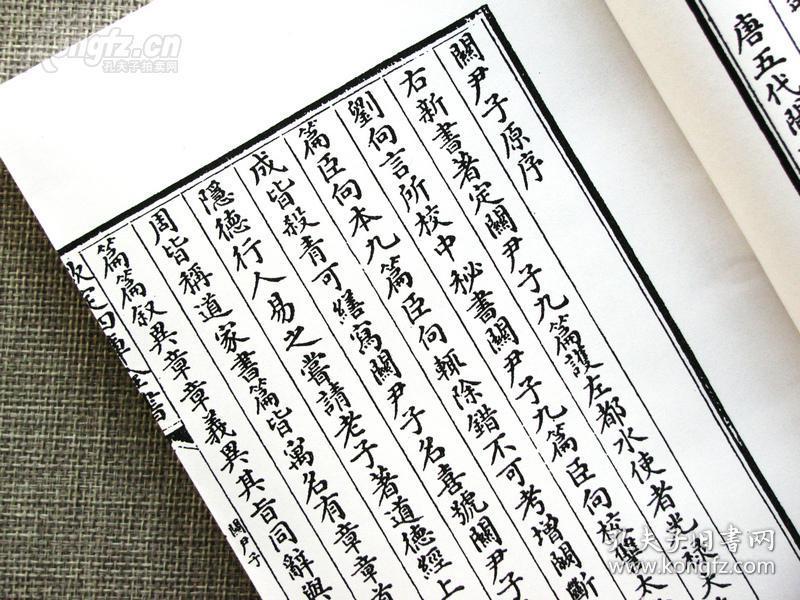 關尹子原序
右新書者定關尹子九篇護左都水使者光祿大
劉向言所校中秘書關尹子九篇臣向校讐太
篇臣向本九篇臣向輒除錯不可考增闕斷
成皆殺青可繕寫關尹子名喜號關尹子
隱德行人易之嘗請老子著道德經上
周皆稱道家書篇皆寓名有章章首
篇篇叙異章章義異其旨同辭與
欽定四庫全書
關尹子
唐五代閒
kongfz.cn
孔夫子拍卖网
孔夫子旧书网
www.kongfz.com